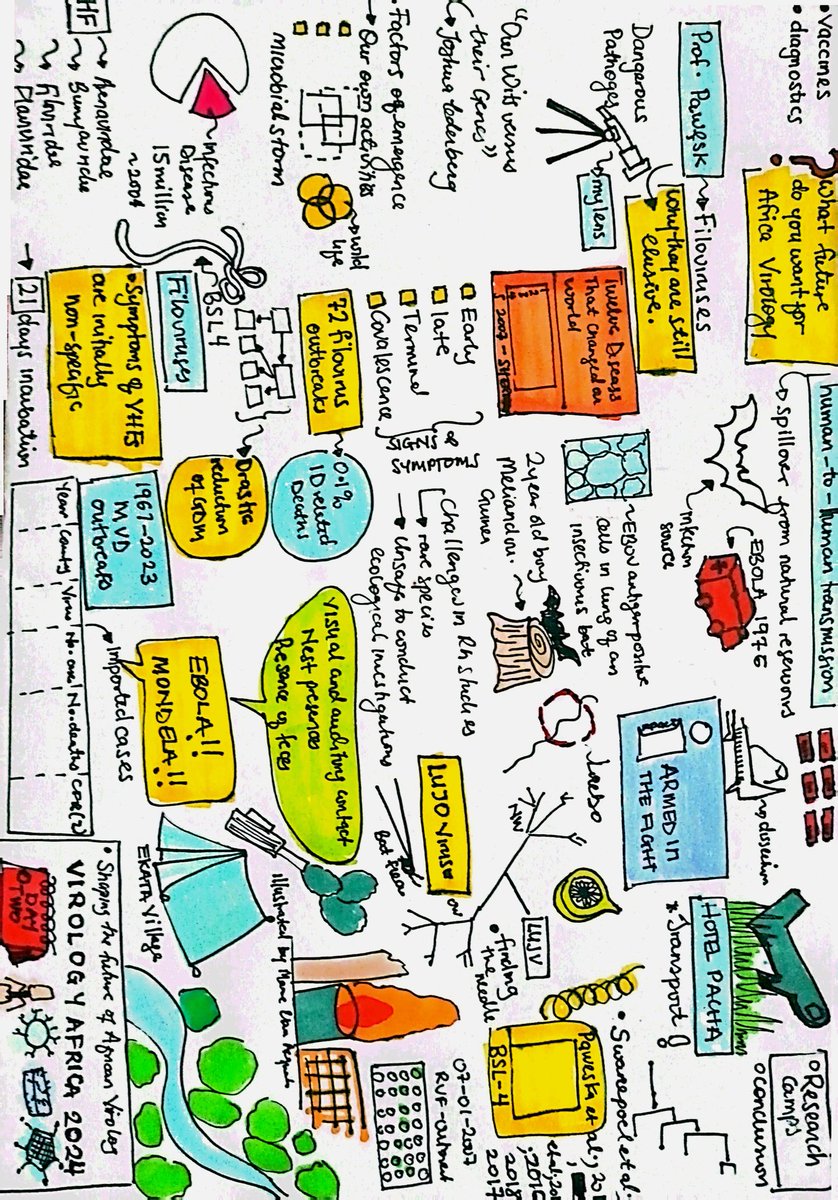 • vaccines
• diagnostics
? What future
do you want for
Africa Virology
human-to-human transmission
spillover from natural reservoirs
oResearch
camps
oconclusion
Prof. Pawęsk
Filoviruses
Why they are still
elusive.
Dangerous
Pathogens
my lens
EBOLA 1976
infection
source
dissection
ARMED IN
THE FIGHT
HOTEL PACHA
* Transport
"Our Wits versus
their Genes"
Joshua Lederberg
Twelve Diseases
That Changed our
world
2 year old boy
Meliandou.
Guinea
EBOV antigen positive
cells in lung of an
insectivorous bat
NW
LUJV
• finding
the needle
• Swanepoel et al.
Paweska et al.,
BSL-4
2018
2017
• Factors of emergence
Our own activities
microbial storm
wild
life
Early
late
Terminal
Covalescence
SIGNS
SYMPTOMS
Challenges in Rh studies
rare species
Unsafe to conduct
ecological investigations
LUJO Virus
07-01-2007
RVF-outbreak
Infectious
Disease
15 million
~2004
72 filovirus
outbreaks
0.1%
ID related
Deaths
Visual and auditing contact
Nest presences
Presence of feces
BSL4
Filoviruses
Drastic
reduction
of GDM
EBOLA!!
MONDELA!!
Imported cases
Illustrated by
EKATA Village
HF
Arenaviridae
Bunyaviridae
Filoviridae
Flaviviridae
• Symptoms of VHFs
are initially
non-specific
21 days incubation
1967-2023
MVD
outbreaks
Year Country Virus No. cases No. deaths CFR(%)
• Shaping the future of African Virology
VIROLOGY AFRICA 2024
DAY
TWO